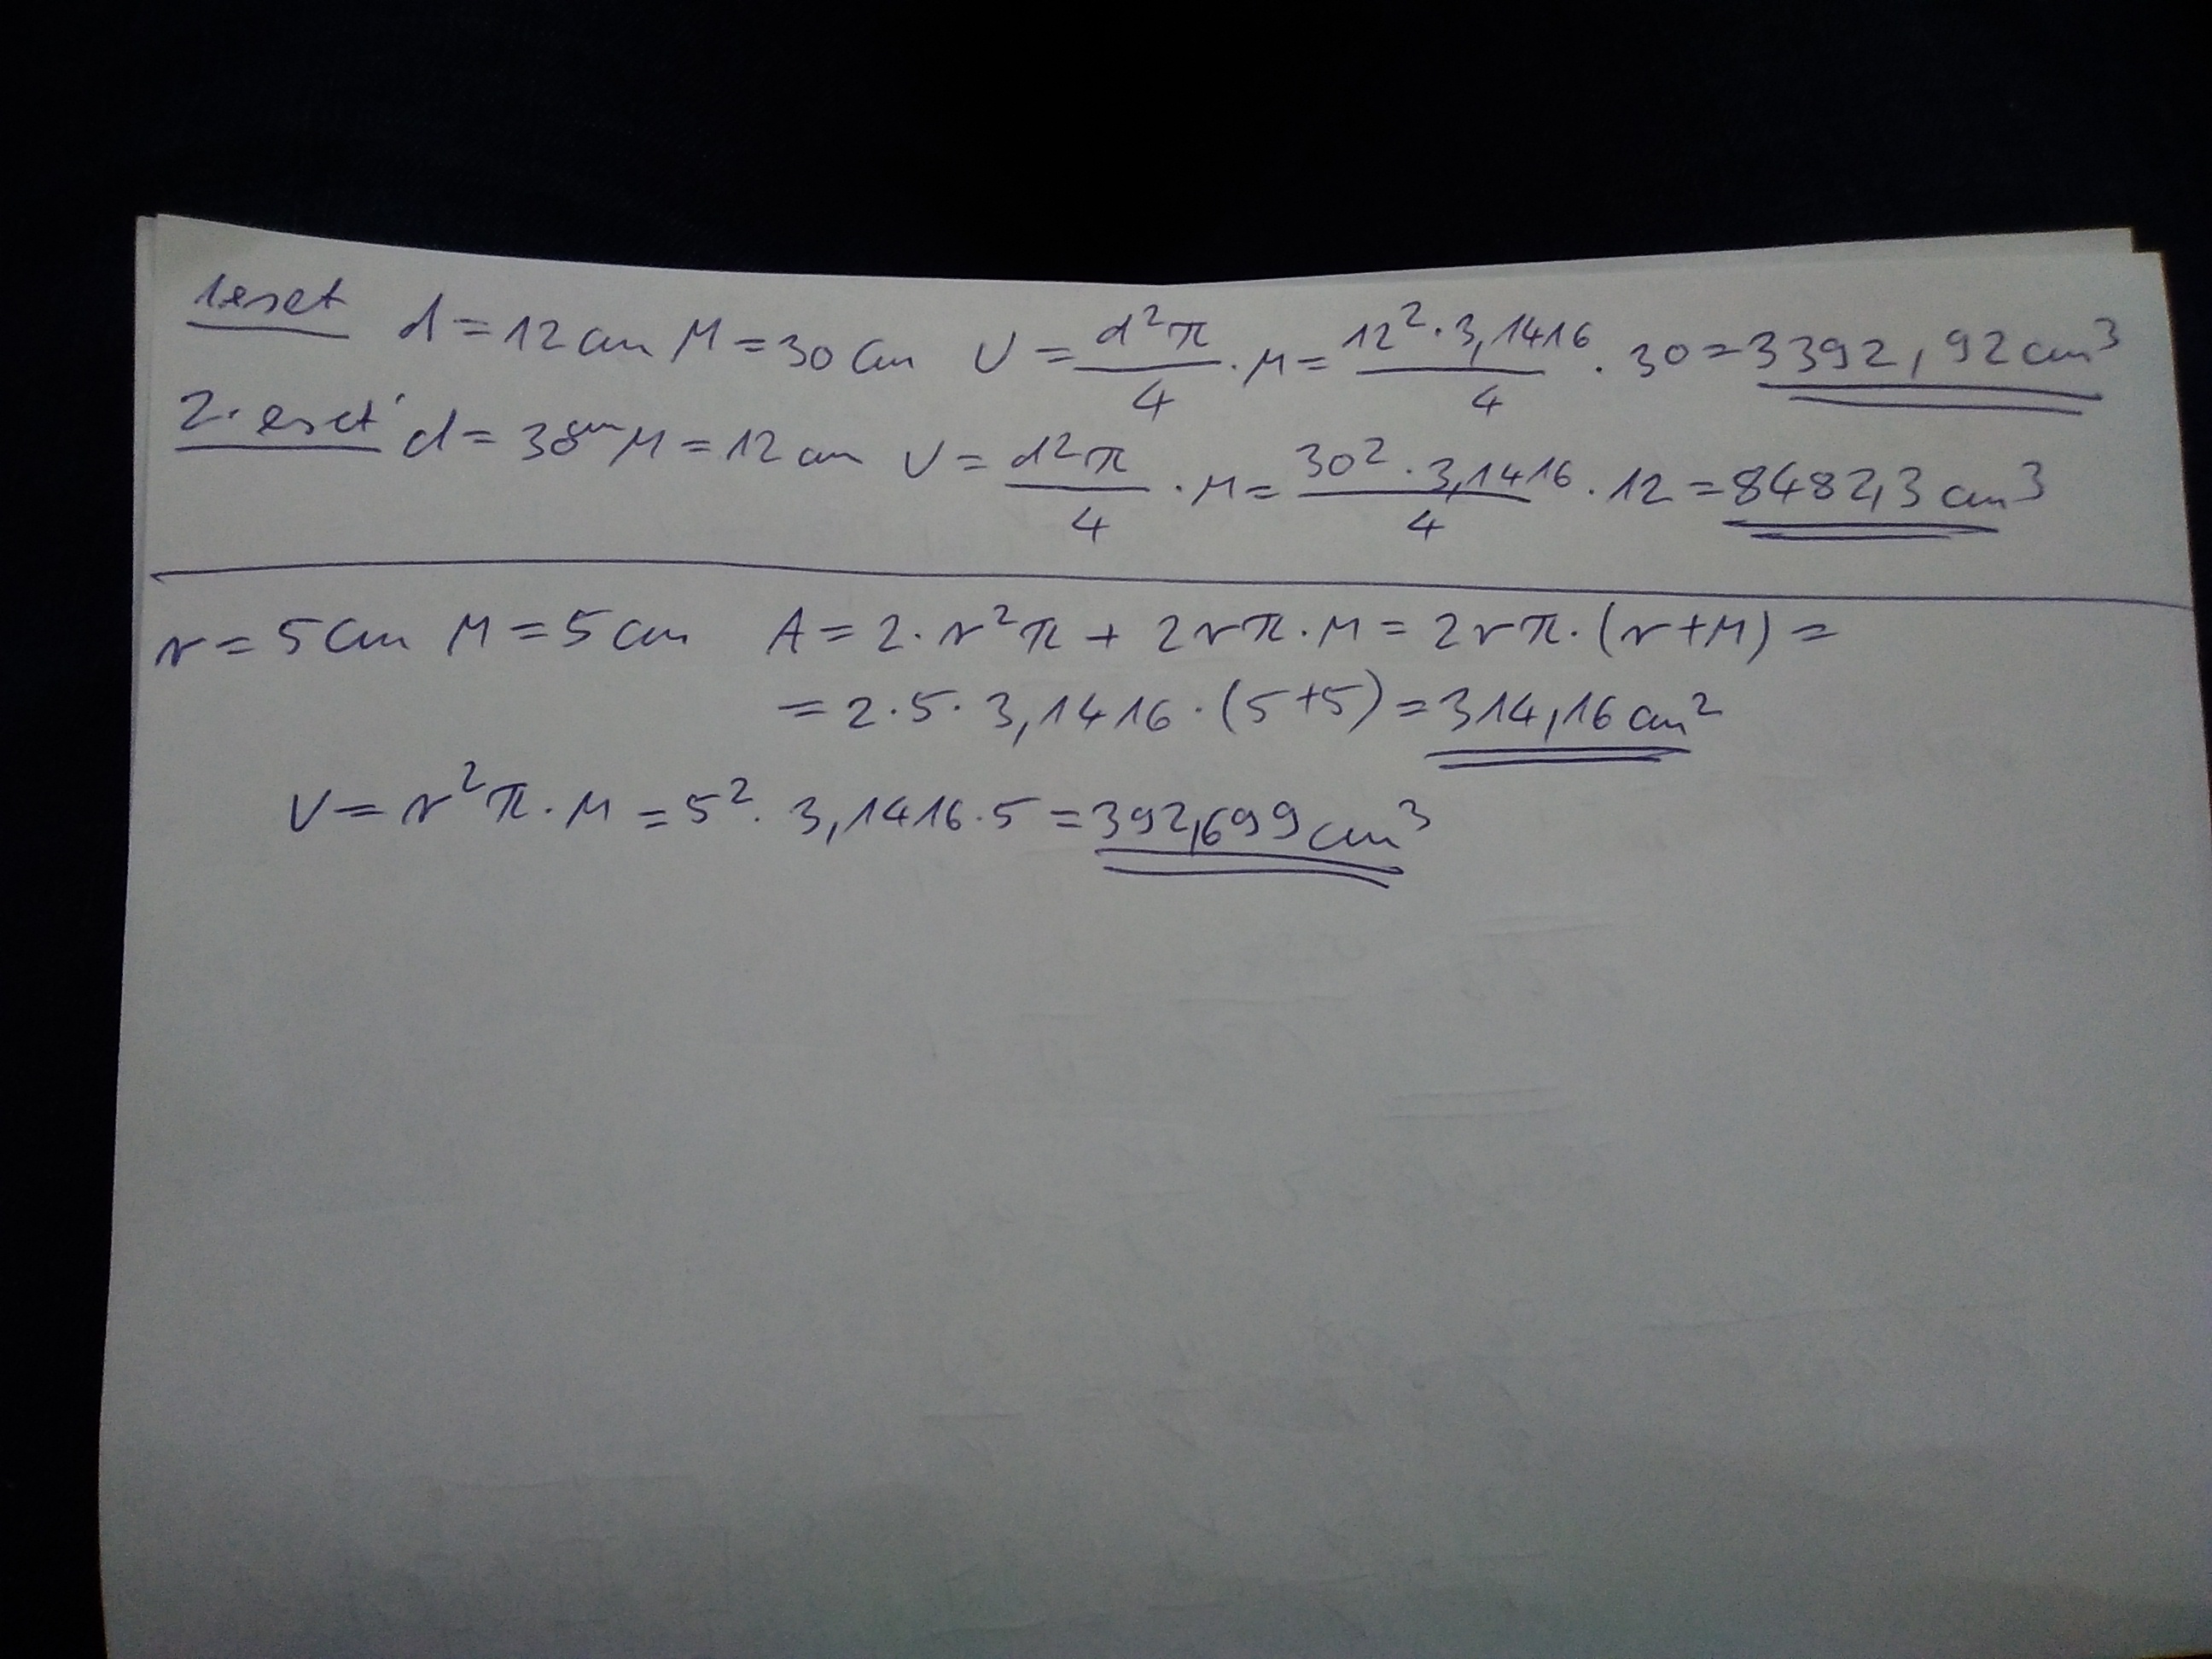 1.eset d = 12 cm M = 30 cm V = d²π/4 · M = 12² · 3,1416/4 · 30 = 3392,92 cm³
2. eset d = 30 cm M = 12 cm V = d²π/4 · M = 30² · 3,1416/4 · 12 = 8482,3 cm³
r = 5 cm M = 5 cm A = 2 · r²π + 2rπ · M = 2rπ · (r+M) =
= 2 · 5 · 3,1416 · (5+5) = 314,16 cm²
V = r²π · M = 5² · 3,1416 · 5 = 392,699 cm³